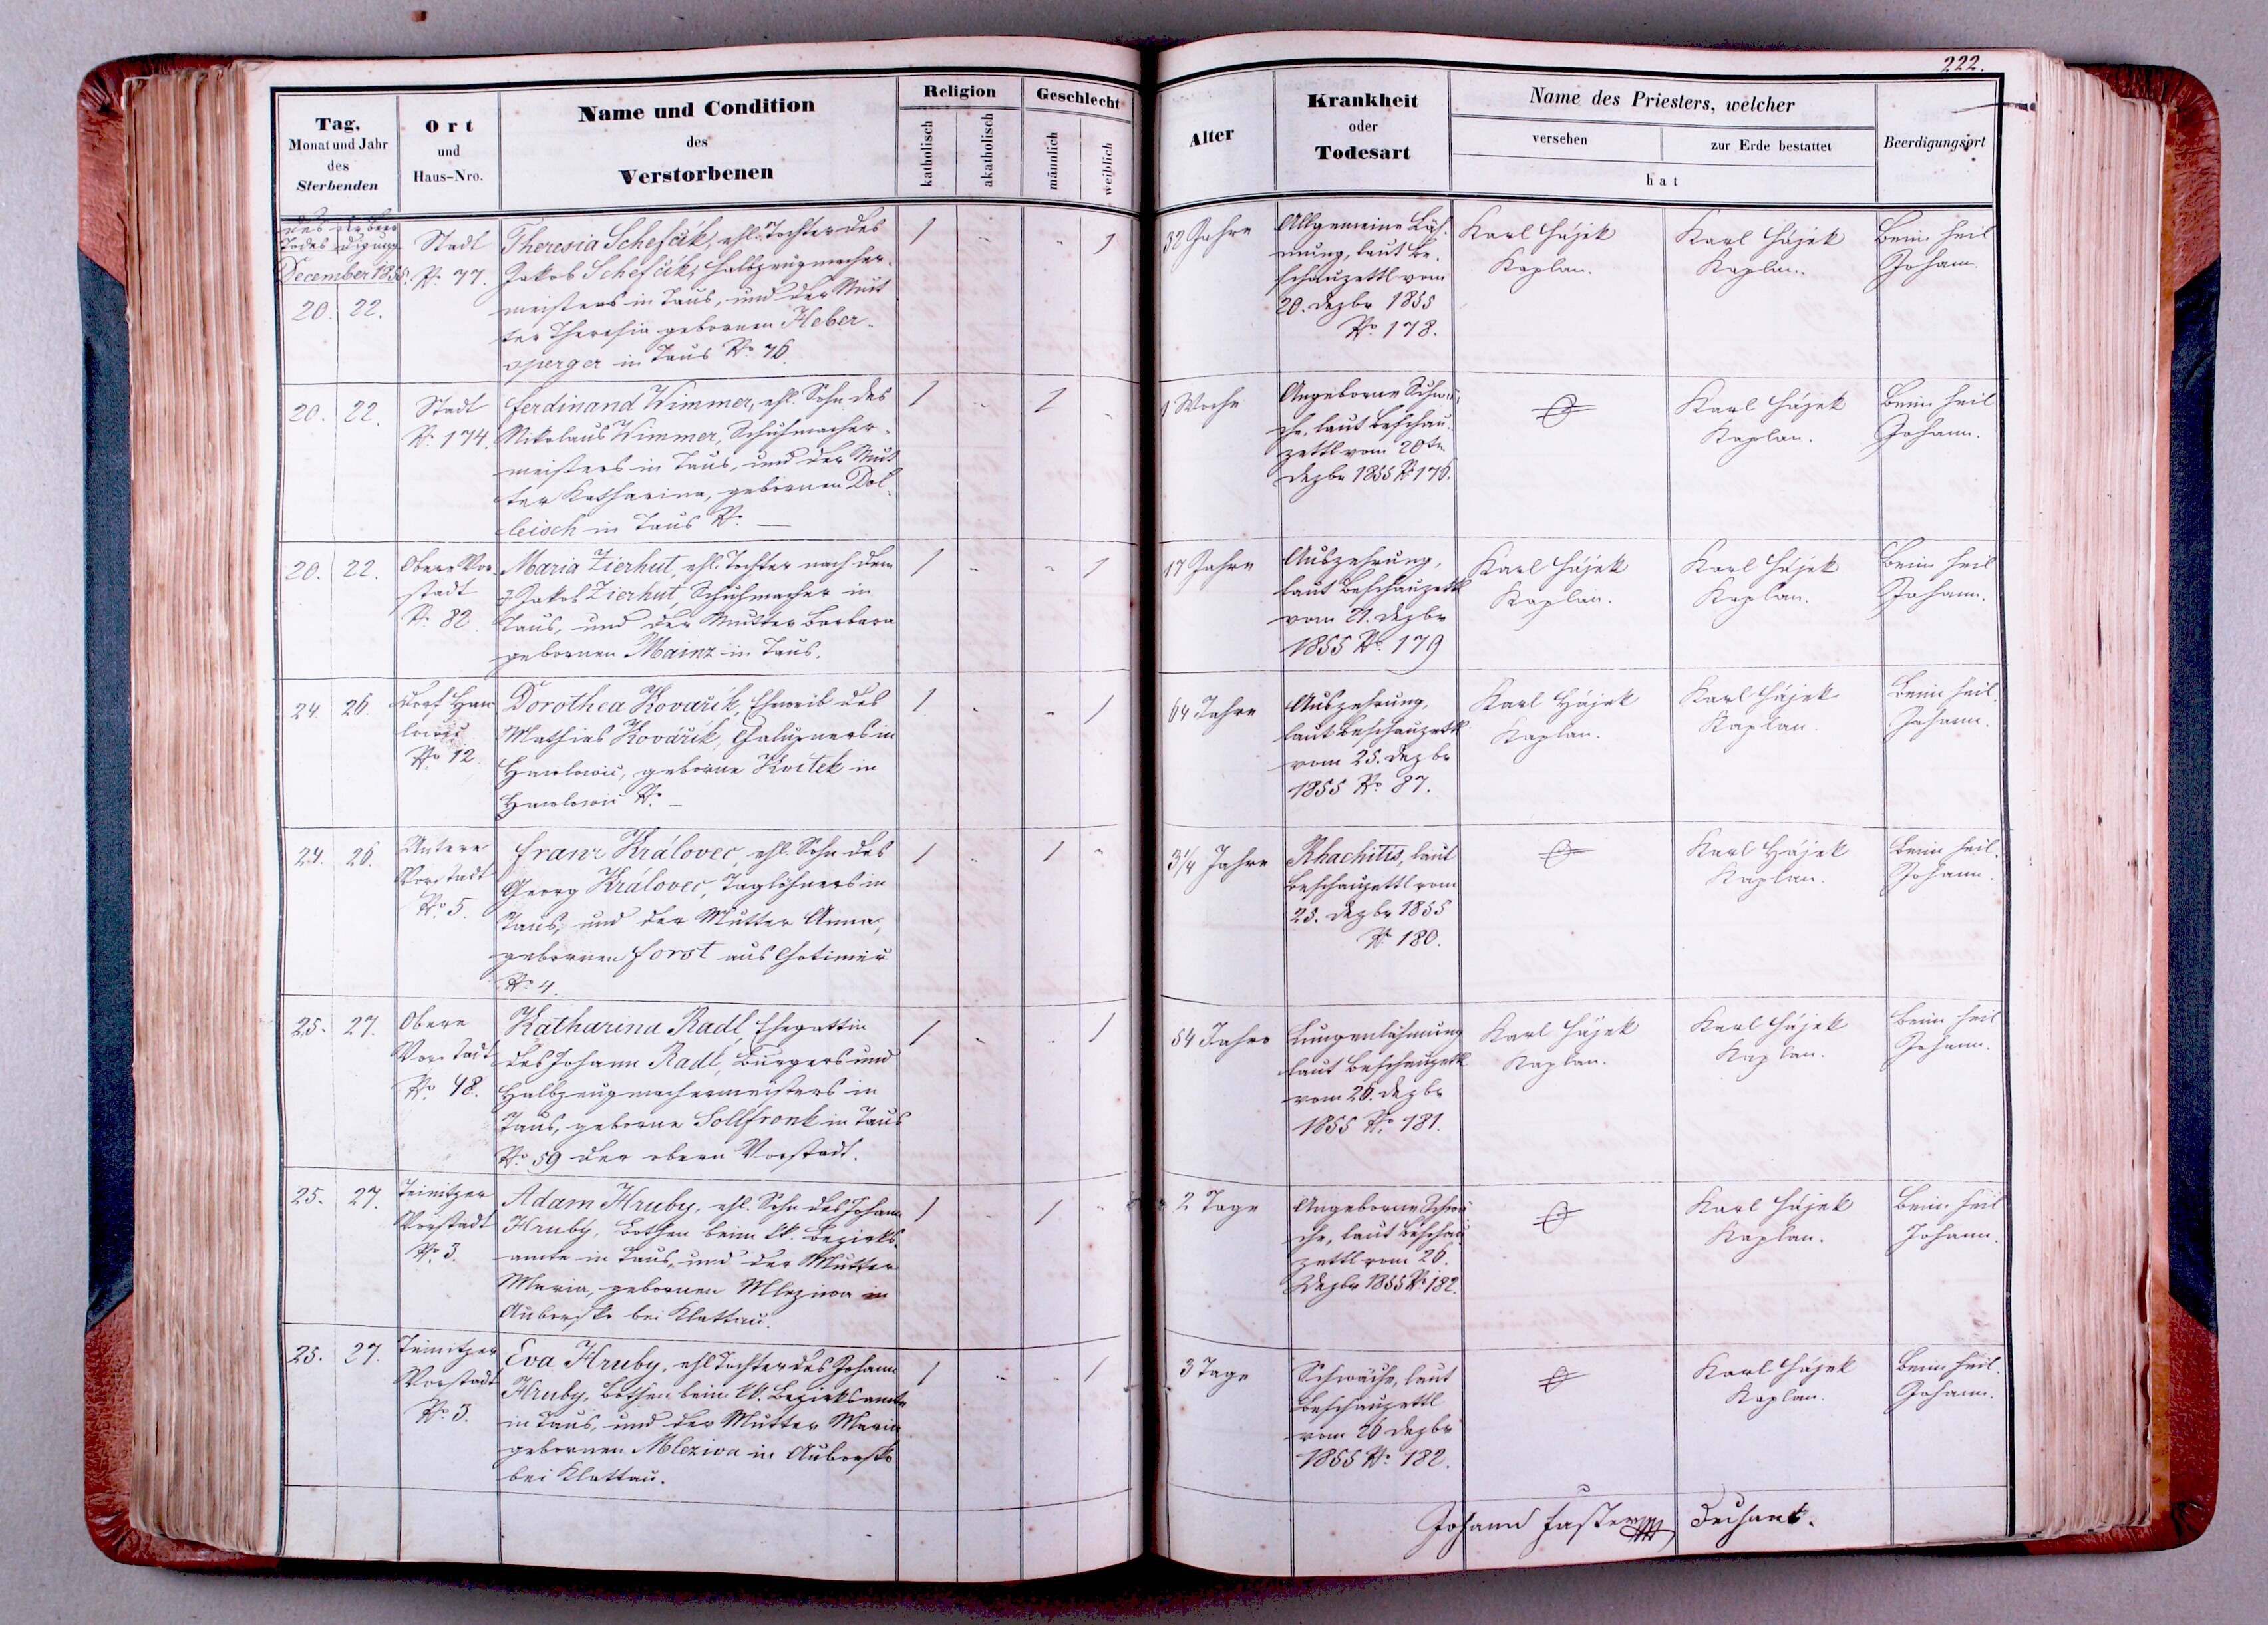 222.
Tag, Monat und Jahr des Sterbenden
Ort und Haus-Nro.
Name und Condition des Verstorbenen
Religion
katholisch
akatholisch
Geschlecht
männlich
weiblich
Alter
Krankheit oder Todesart
Name des Priesters, welcher
versehen
zur Erde bestattet
hat
Beerdigungsort
des Todes
der Beerdigung
December 1855.
20. 22.
Stadt
No. 77.
Theresia Schefčik, ehl. Tochter des
Jakob Schefčik, Halbzeugmacher-
meisters in Taus, und der Mut
ter Theresia gebornen Heber-
sperger in Taus No 76.
1 " " 1
32 Jahre
Allgemeine Läh-
mung, laut Be-
schauzettl vom
20. Dezbr 1855
No 178.
Karl Hájek
Kaplan.
Karl Hájek
Kaplan.
Beim heil
Johann.
20. 22.
Stadt
No. 174.
Ferdinand Wimmer, ehl. Sohn des
Nikolaus Wimmer, Schuhmacher-
meisters in Taus, und der Mut
ter Katharina, gebornen Dol-
leisch in Taus No. —
1 " 1 "
1 Woche
Angeborne Schwä-
che, laut Beschau-
zettl vom 20tn
Dezbr 1855 No 176.
Karl Hájek
Kaplan.
Beim heil
Johann.
20. 22.
Obere Vor-
stadt
No. 82.
Maria Zierhut, ehl. Tochter nach dem
† Jakob Zierhut Schuhmacher in
Taus, und der Mutter Barbara
gebornen Mainz in Taus.
1 " " 1
17 Jahre
Auszehrung,
laut Beschauzettl
vom 21. Dezbr
1855 No. 179
Karl Hájek
Kaplan.
Karl Hájek
Kaplan.
Beim heil
Johann.
24. 26.
Dorf Haw
lowic
No 12.
Dorothea Kovařik, Eheweib des
Mathias Kovařik, Chalupners in
Hawlowic, geborne Kvitek in
Hawlowic No. —
1 " " 1
64 Jahre
Auszehrung,
laut Beschauzettl
vom 25. Dezbr
1855 No 87.
Karl Hájek
Kaplan.
Karl Hájek
Kaplan.
Beim heil.
Johann.
24. 26.
Untere
Vorstadt
No. 5.
Franz Královec, ehl. Sohn des
Georg Královec, Taglöhners in
Taus, und der Mutter Anna,
gebornen Forst aus Chotimir
No 4.
1 " 1 "
3 1/4 Jahre
Rhachitis, laut
Beschauzettl vom
25. Dezbr 1855
No 180.
Karl Hájek
Kaplan.
Beim heil.
Johann.
25. 27.
Obere
Vorstadt
No. 48.
Katharina Radl, Ehegattin
des Johann Radl, Bürgers und
Halbzeugmachermeisters in
Taus, geborne Sollfronk in Taus
No. 59 der obern Vorstadt.
1 " " 1
54 Jahre
Lungenlähmung
laut Beschauzettl
vom 26. Dezbr
1855 No. 181.
Karl Hájek
Kaplan.
Karl Hájek
Kaplan.
Beim heil
Johann.
25. 27.
Teinitzer
Vorstadt
No. 3.
Adam Hruby, ehl. Sohn des Johann
Hruby, Bothen beim kk. Bezirks-
amte in Taus, und der Mutter
Maria, gebornen Mleziwa in
Auborsko bei Klattau.
1 " 1 "
2 Tage
Angeborne Schwä
che, laut Beschau
zettl vom 26.
Dezbr 1855 No 182.
Karl Hájek
Kaplan.
Beim heil
Johann.
25. 27.
Teinitzer
Vorstadt
No. 3.
Eva Hruby, ehl Tochter des Johann
Hruby, Bothen beim kk. Bezirksamte
in Taus, und der Mutter Maria
gebornen Mleziwa in Auborsko
bei Klattau.
1 " " 1
3 Tage
Schwäche, laut
Beschauzettl
vom 26 Dezbr
1855 No. 182.
Karl Hájek
Kaplan.
Beim heil.
Johann.
Johann Faster Dechant.